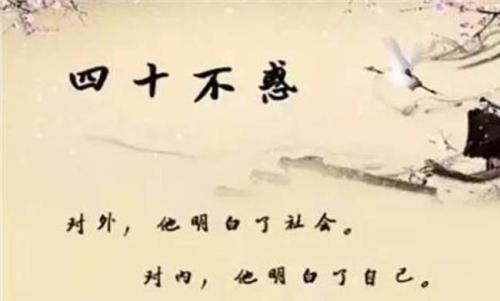 四十不惑
对外，他明白了社会。
对内，他明白了自己。